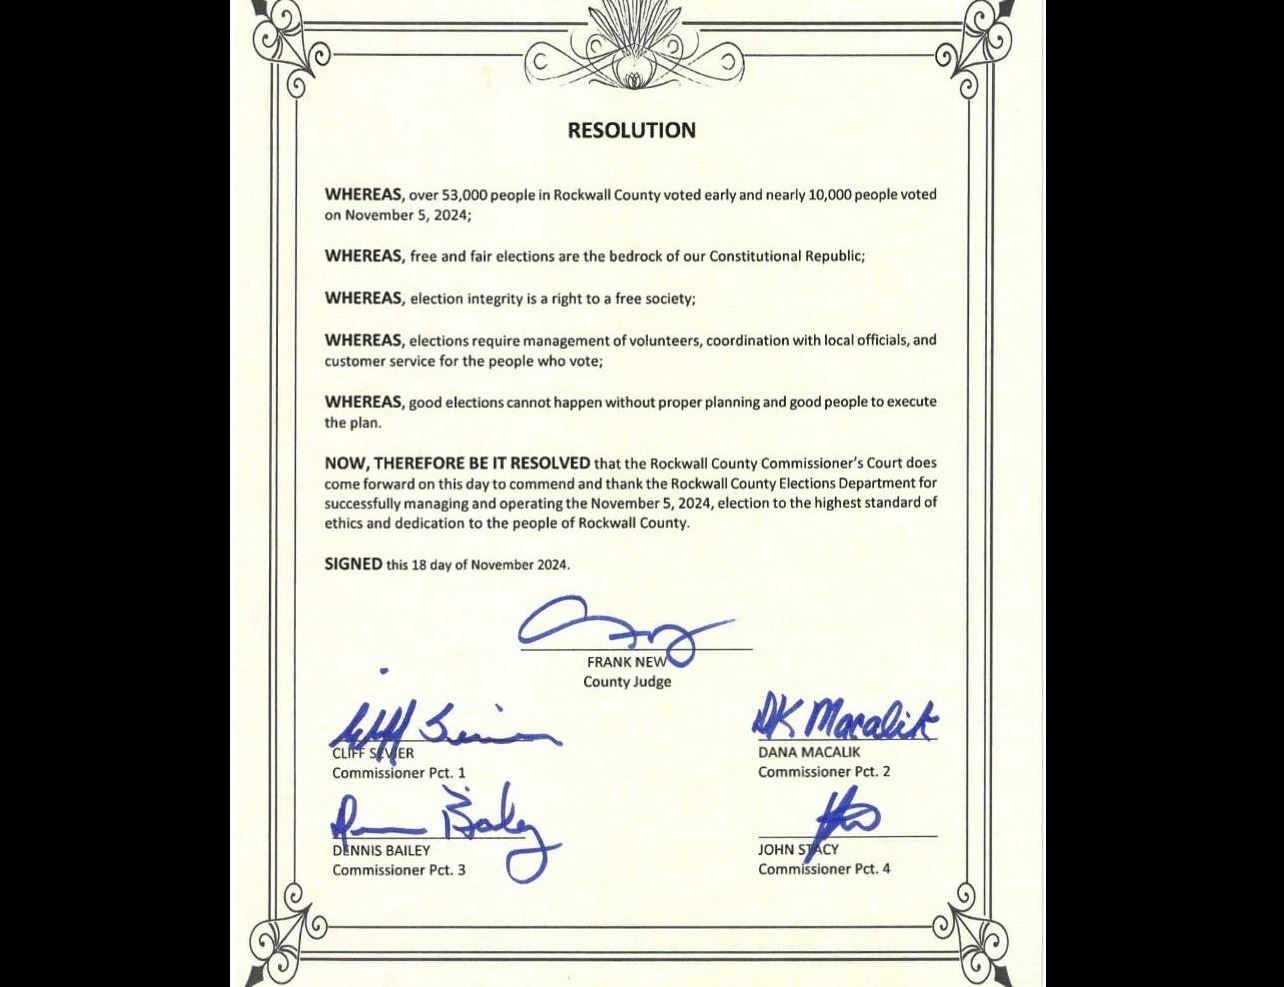 RESOLUTION
WHEREAS, over 53,000 people in Rockwall County voted early and nearly 10,000 people voted
on November 5, 2024;
WHEREAS, free and fair elections are the bedrock of our Constitutional Republic;
WHEREAS, election integrity is a right to a free society;
WHEREAS, elections require management of volunteers, coordination with local officials, and
customer service for the people who vote;
WHEREAS, good elections cannot happen without proper planning and good people to execute
the plan.
NOW, THEREFORE BE IT RESOLVED that the Rockwall County Commissioner's Court does
come forward on this day to commend and thank the Rockwall County Elections Department for
successfully managing and operating the November 5, 2024, election to the highest standard of
ethics and dedication to the people of Rockwall County.
SIGNED this 18 day of November 2024.
FRANK NEW
County Judge
Cliff Sevier
DK Macalik
CLIFF SEVIER
DANA MACALIK
Commissioner Pct. 1
Commissioner Pct. 2
Bailey
DENNIS BAILEY
JOHN STACY
Commissioner Pct. 3
Commissioner Pct. 4